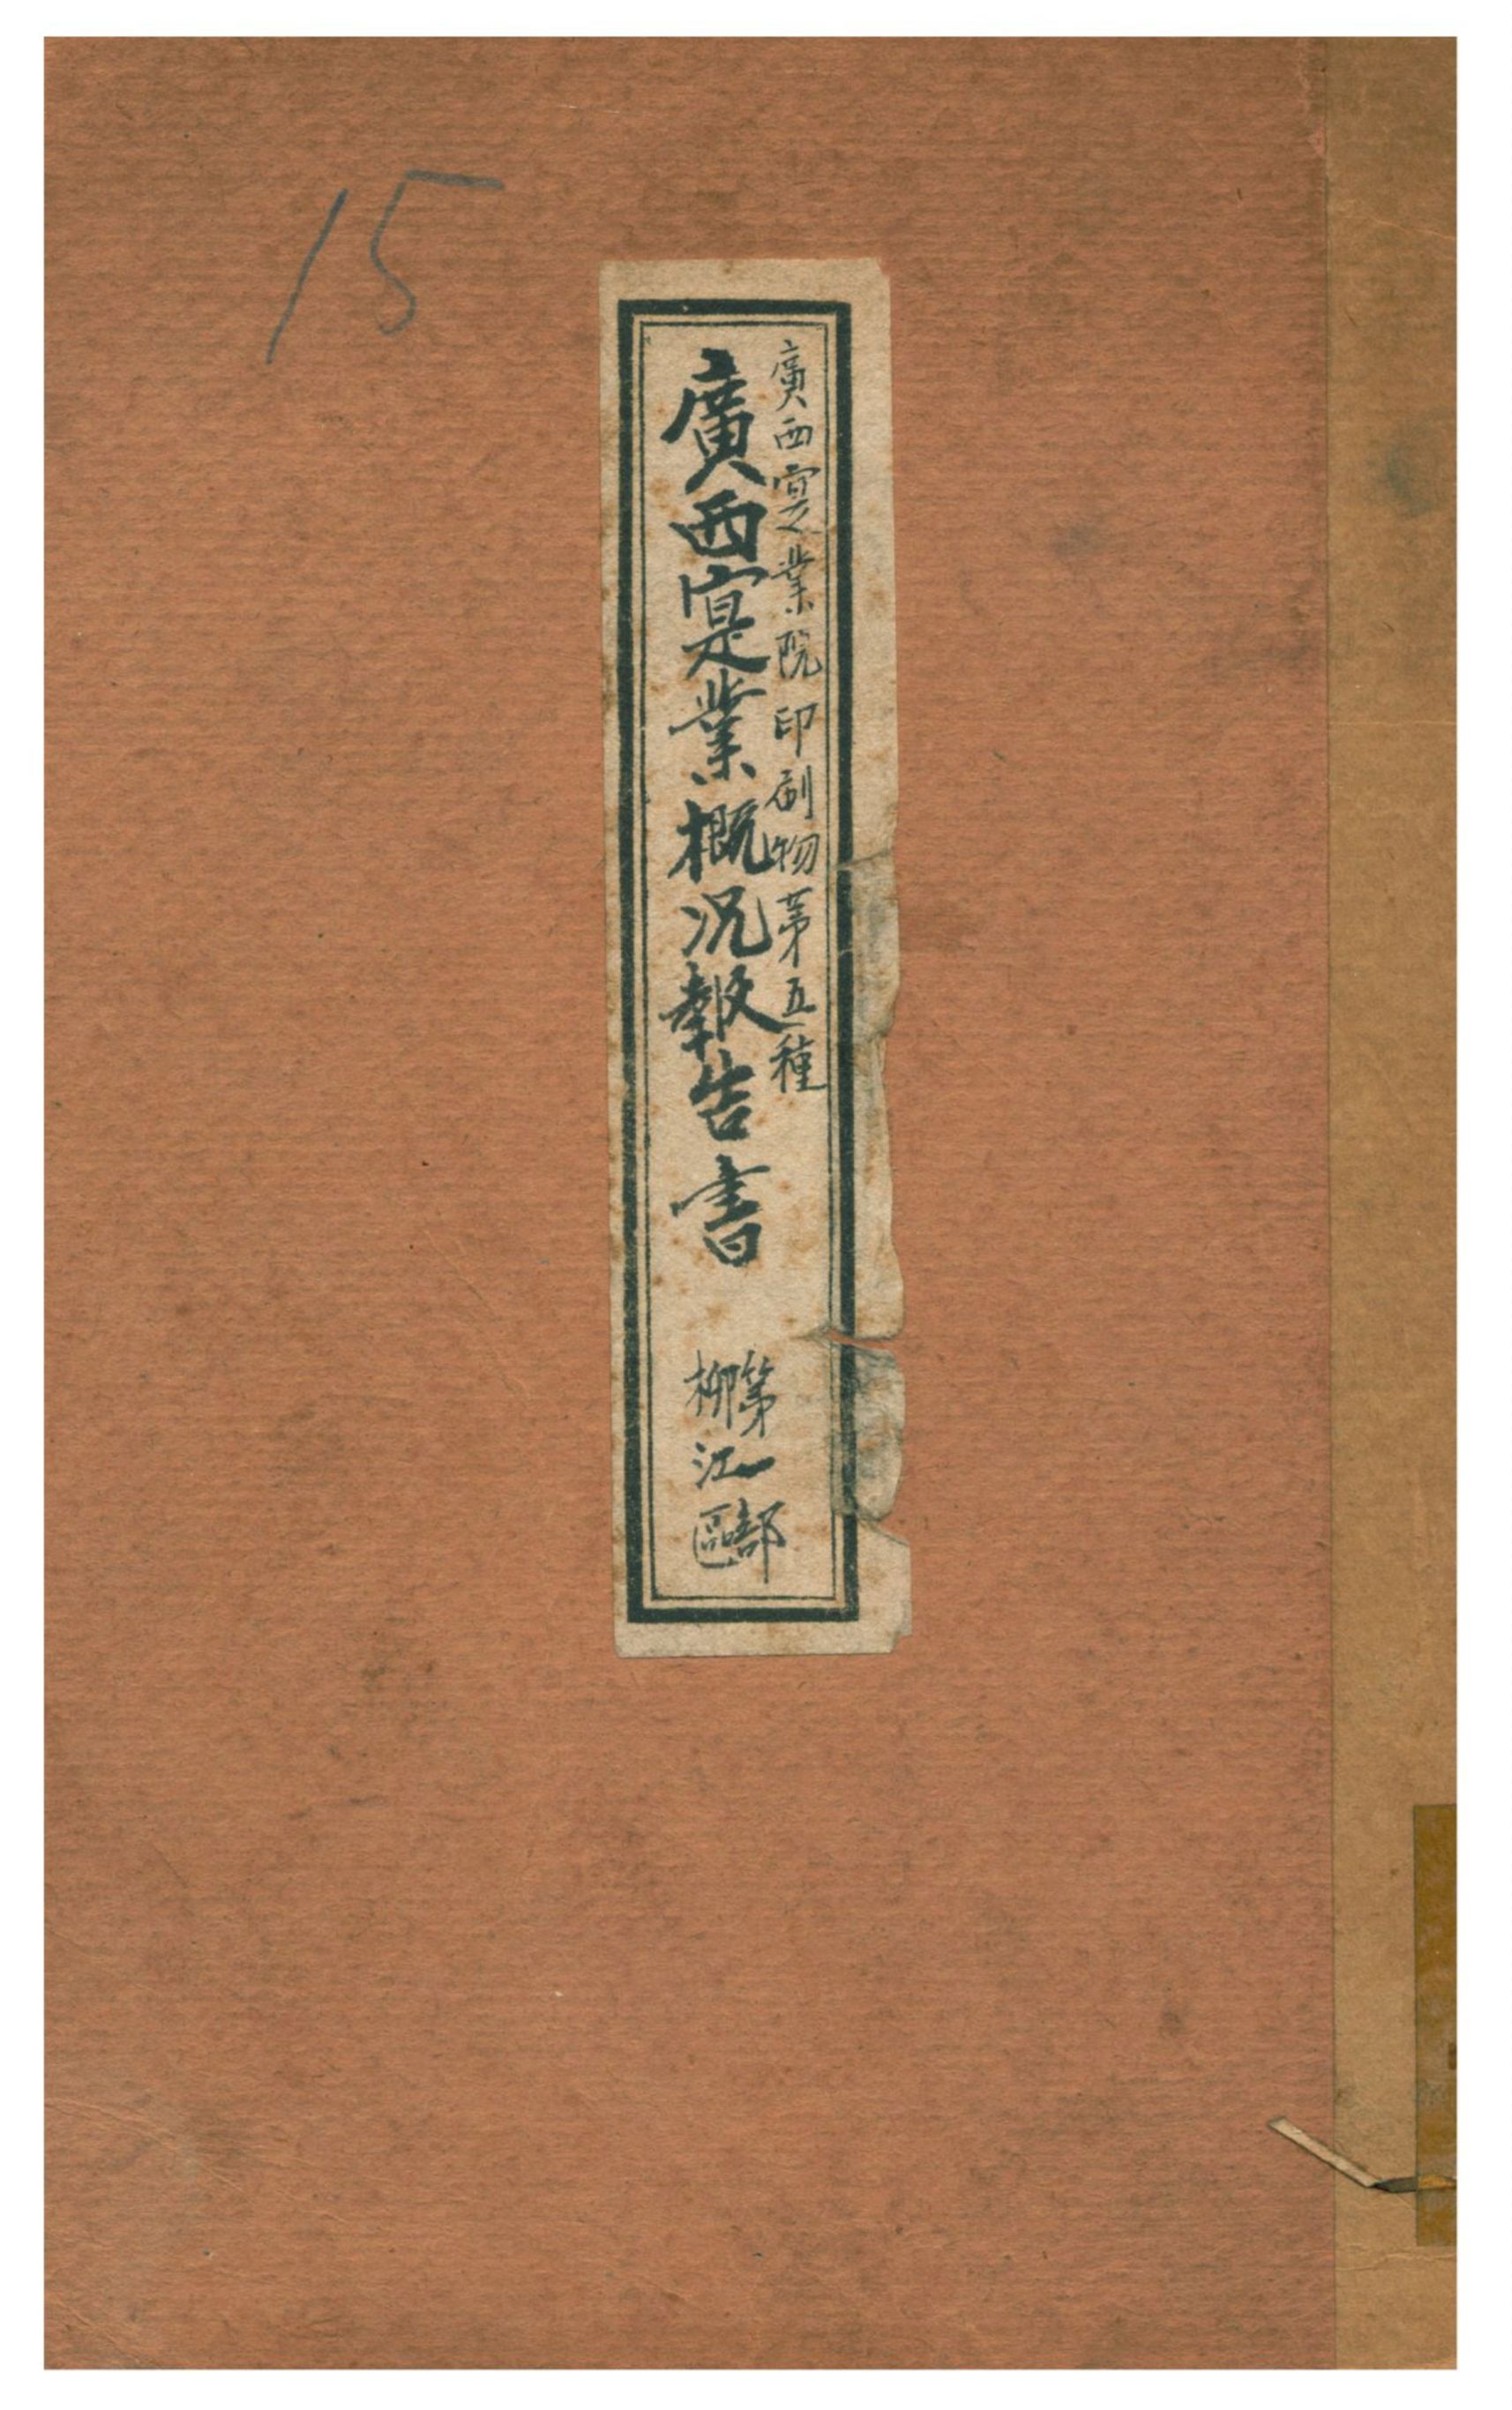 15
廣西寔業院印刷物第五種
廣西寔業概况報告書
第一部
柳江區